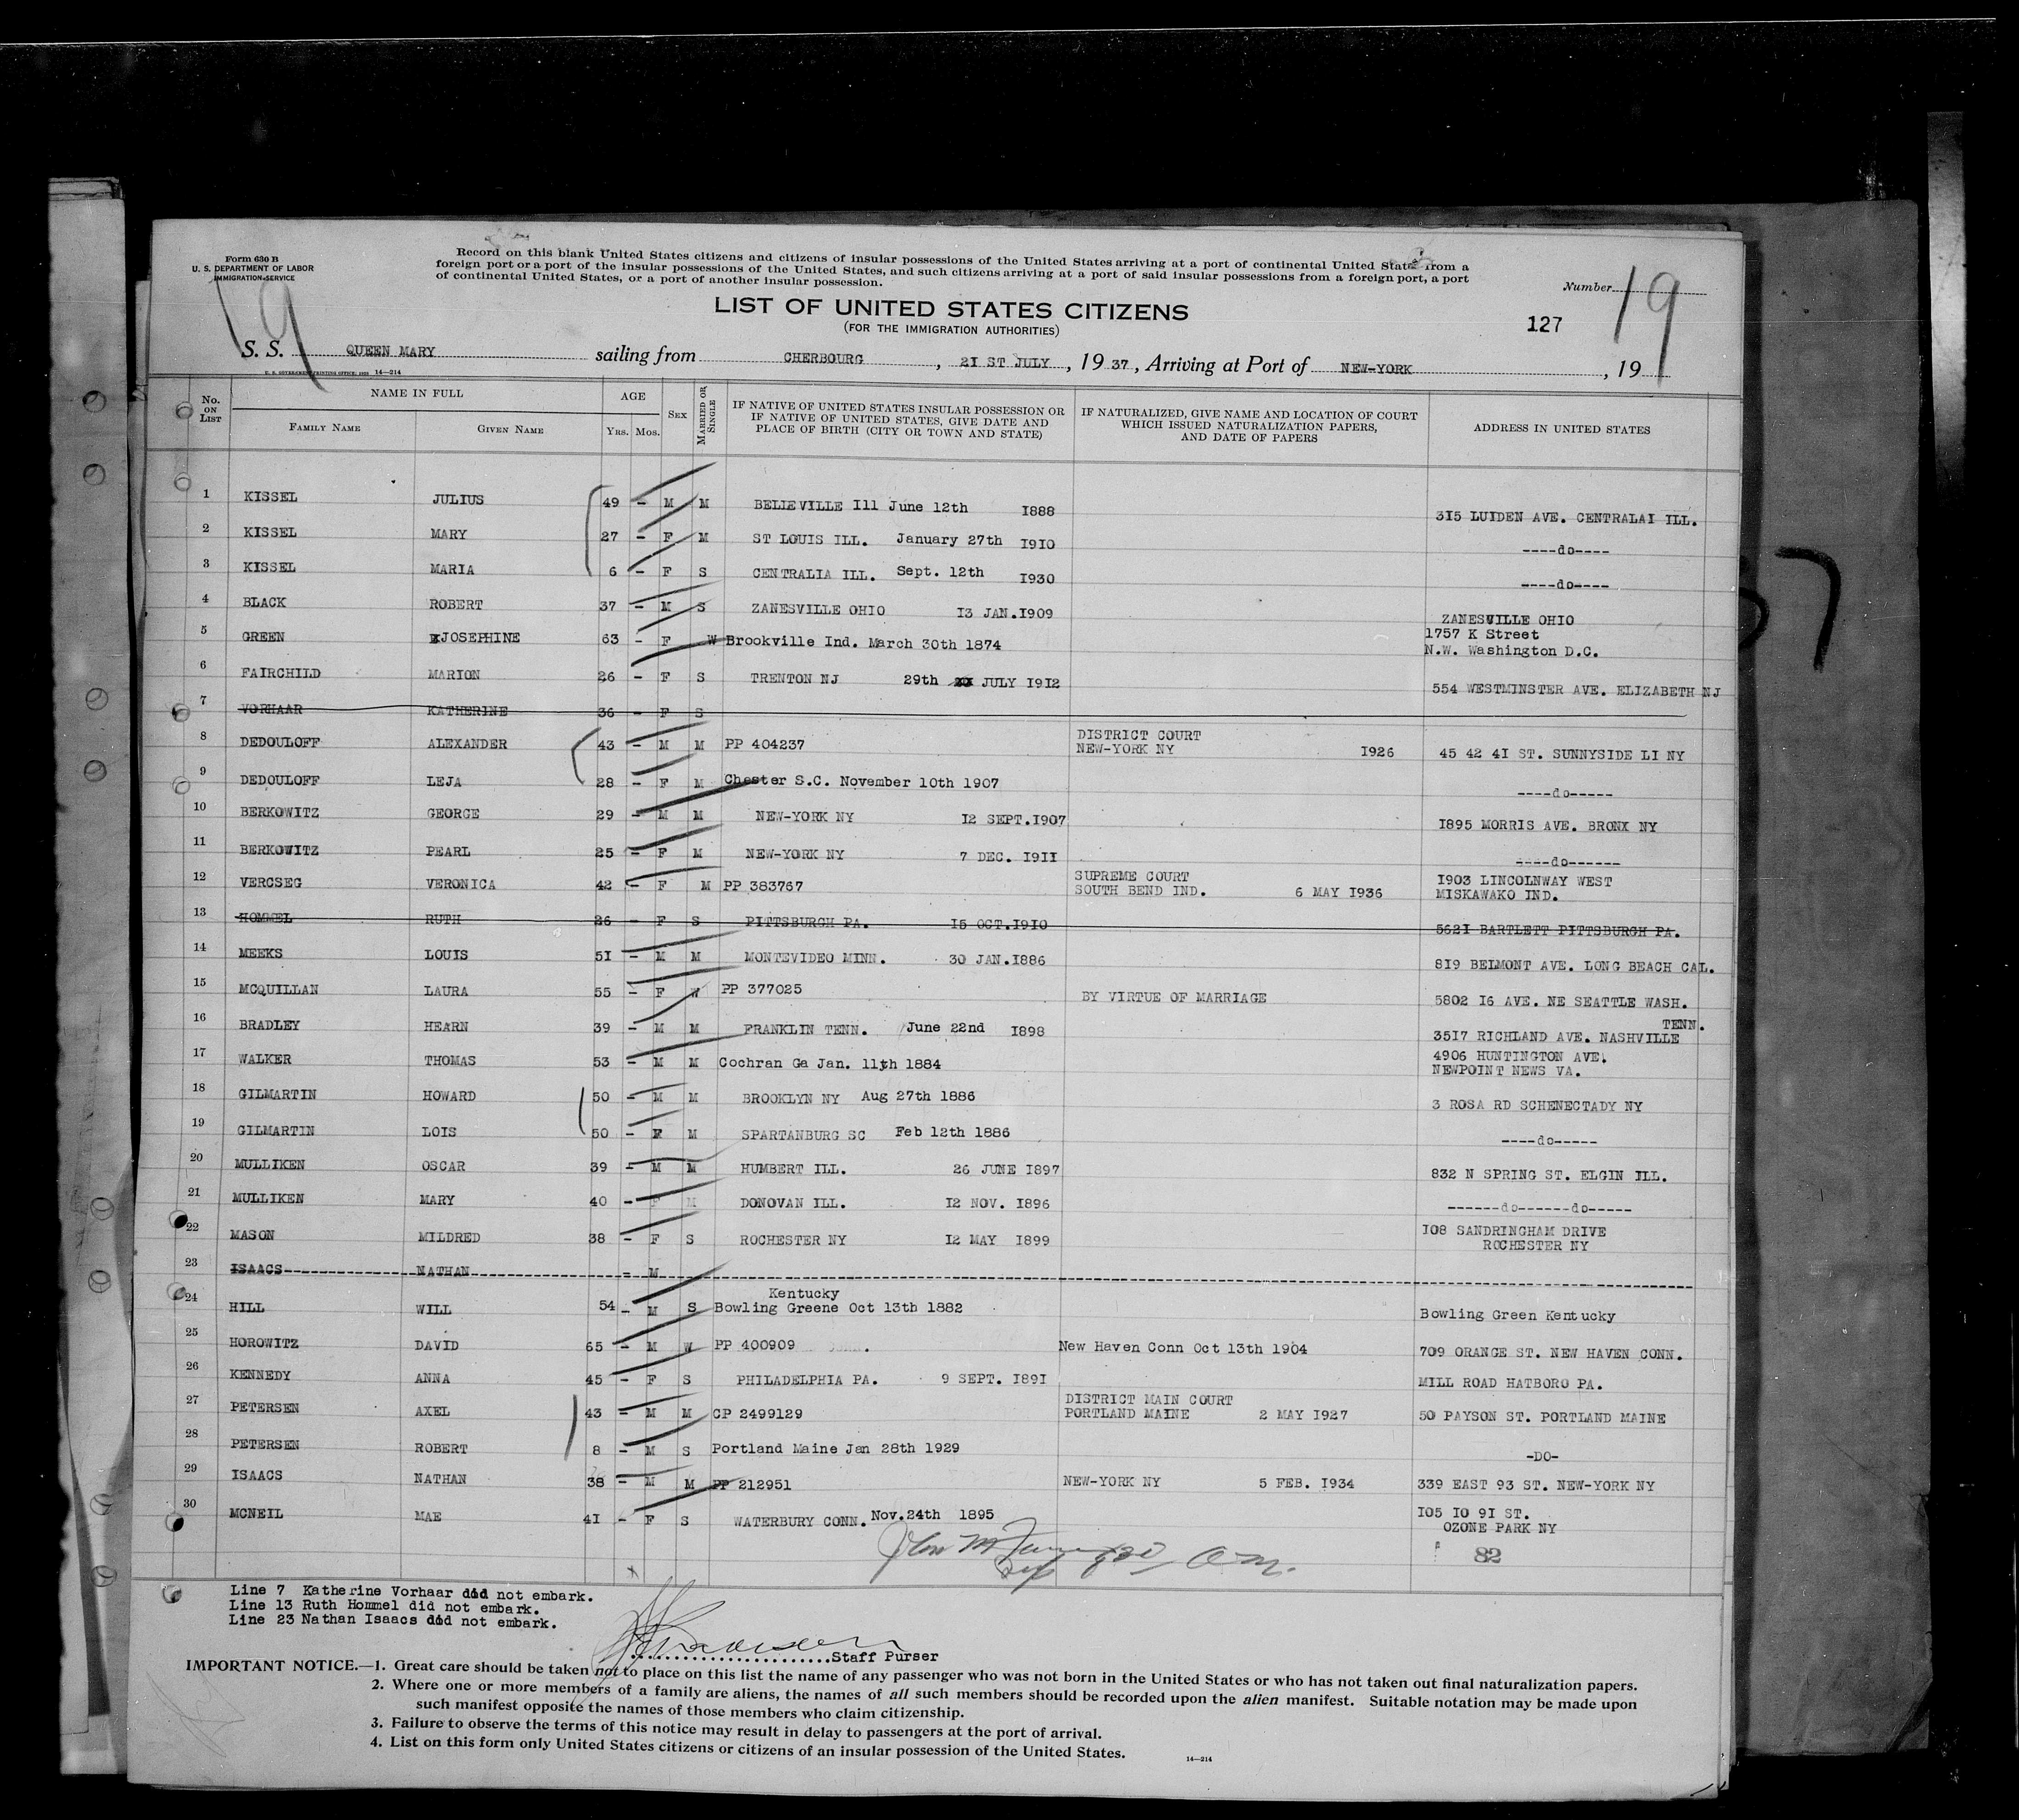 Form 630 B
U. S. DEPARTMENT OF LABOR
IMMIGRATION SERVICE
Record on this blank United States citizens and citizens of insular possessions of the United States arriving at a port of continental United States from a
foreign port or a port of the insular possessions of the United States, and such citizens arriving at a port of said insular possessions from a foreign port, a port
of continental United States, or a port of another insular possession.
Number 19
19
LIST OF UNITED STATES CITIZENS
(FOR THE IMMIGRATION AUTHORITIES)
127
S. S. QUEEN MARY sailing from CHERBOURG, 21 ST JULY, 19 37, Arriving at Port of NEW-YORK, 19
U. S. GOVERNMENT PRINTING OFFICE: 14—214
No. ON LIST NAME IN FULL FAMILY NAME GIVEN NAME AGE Yrs. Mos. SEX MARRIED OR SINGLE IF NATIVE OF UNITED STATES INSULAR POSSESSION OR IF NATIVE OF UNITED STATES, GIVE DATE AND PLACE OF BIRTH (CITY OR TOWN AND STATE) IF NATURALIZED, GIVE NAME AND LOCATION OF COURT WHICH ISSUED NATURALIZATION PAPERS, AND DATE OF PAPERS ADDRESS IN UNITED STATES
1 KISSEL JULIUS 49 - M M BELIEVILLE Ill June 12th 1888 315 LUIDEN AVE. CENTRALAI ILL.
2 KISSEL MARY 27 - F M ST LOUIS ILL. January 27th 1910 ----do----
3 KISSEL MARIA 6 - F S CENTRALIA ILL. Sept. 12th 1930 ----do----
4 BLACK ROBERT 37 - M S ZANESVILLE OHIO 13 JAN.1909 ZANESVILLE OHIO
5 GREEN JOSEPHINE 63 - F W Brookville Ind. March 30th 1874 1757 K Street
N.W. Washington D.C.
6 FAIRCHILD MARION 26 - F S TRENTON NJ 29th JULY 1912 554 WESTMINSTER AVE. ELIZABETH NJ
7 VORHAAR KATHERINE 36 - F S
8 DEDOULOFF ALEXANDER 43 - M M PP 404237 DISTRICT COURT
NEW-YORK NY 1926 45 42 41 ST. SUNNYSIDE LI NY
9 DEDOULOFF LEJA 28 - F M Chester S.C. November 10th 1907 ----do-----
10 BERKOWITZ GEORGE 29 - M M NEW-YORK NY 12 SEPT.1907 1895 MORRIS AVE. BRONX NY
11 BERKOWITZ PEARL 25 - F M NEW-YORK NY 7 DEC. 1911 ----do------
12 VERCSEG VERONICA 42 - F M PP 383767 SUPREME COURT
SOUTH BEND IND. 6 MAY 1936 1903 LINCOLNWAY WEST
MISKAWAKO IND.
13 HOMMEL RUTH 26 - F S PITTSBURGH PA. 15 OCT.1910 5621 BARTLETT PITTSBURGH PA.
14 MEEKS LOUIS 51 - M M MONTEVIDEO MINN. 30 JAN.1886 819 BELMONT AVE. LONG BEACH CAL.
15 MCQUILLAN LAURA 55 - F W PP 377025 BY VIRTUE OF MARRIAGE 5802 16 AVE. NE SEATTLE WASH.
16 BRADLEY HEARN 39 - M M FRANKLIN TENN. June 22nd 1898 3517 RICHLAND AVE. NASHVILLE TENN.
17 WALKER THOMAS 53 - M M Cochran Ga Jan. 11th 1884 4906 HUNTINGTON AVE.
NEWPOINT NEWS VA.
18 GILMARTIN HOWARD 50 - M M BROOKLYN NY Aug 27th 1886 3 ROSA RD SCHENECTADY NY
19 GILMARTIN LOIS 50 - F M SPARTANBURG SC Feb 12th 1886 ----do-----
20 MULLIKEN OSCAR 39 - M M HUMBERT ILL. 26 JUNE 1897 832 N SPRING ST. ELGIN ILL.
21 MULLIKEN MARY 40 - F M DONOVAN ILL. 12 NOV. 1896 ------do------do-----
22 MASON MILDRED 38 - F S ROCHESTER NY 12 MAY 1899 108 SANDRINGHAM DRIVE
ROCHESTER NY
23 ISAACS NATHAN - M
24 HILL WILL 54 - M S Kentucky
Bowling Greene Oct 13th 1882 Bowling Green Kentucky
25 HOROWITZ DAVID 65 - M W PP 400909 New Haven Conn Oct 13th 1904 709 ORANGE ST. NEW HAVEN CONN.
26 KENNEDY ANNA 45 - F S PHILADELPHIA PA. 9 SEPT. 1891 MILL ROAD HATBORO PA.
27 PETERSEN AXEL 43 - M M CP 2499129 DISTRICT MAIN COURT
PORTLAND MAINE 2 MAY 1927 50 PAYSON ST. PORTLAND MAINE
28 PETERSEN ROBERT 8 - M S Portland Maine Jan 28th 1929 -DO-
29 ISAACS NATHAN 38 - M M PP 212951 NEW-YORK NY 5 FEB. 1934 339 EAST 93 ST. NEW-YORK NY
30 MCNEIL MAE 41 - F S WATERBURY CONN. Nov.24th 1895 105 10 91 ST.
OZONE PARK NY
82
Line 7 Katherine Vorhaar did not embark.
Line 13 Ruth Hommel did not embark.
Line 23 Nathan Isaacs did not embark.
Staff Purser
IMPORTANT NOTICE.—1. Great care should be taken not to place on this list the name of any passenger who was not born in the United States or who has not taken out final naturalization papers.
2. Where one or more members of a family are aliens, the names of all such members should be recorded upon the alien manifest. Suitable notation may be made upon
such manifest opposite the names of those members who claim citizenship.
3. Failure to observe the terms of this notice may result in delay to passengers at the port of arrival.
4. List on this form only United States citizens or citizens of an insular possession of the United States.
14—214